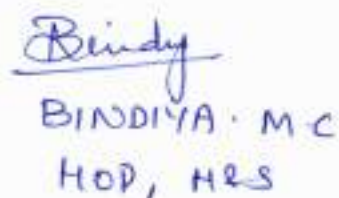 Bindy
BINDIYA. M C
HOD, HRS